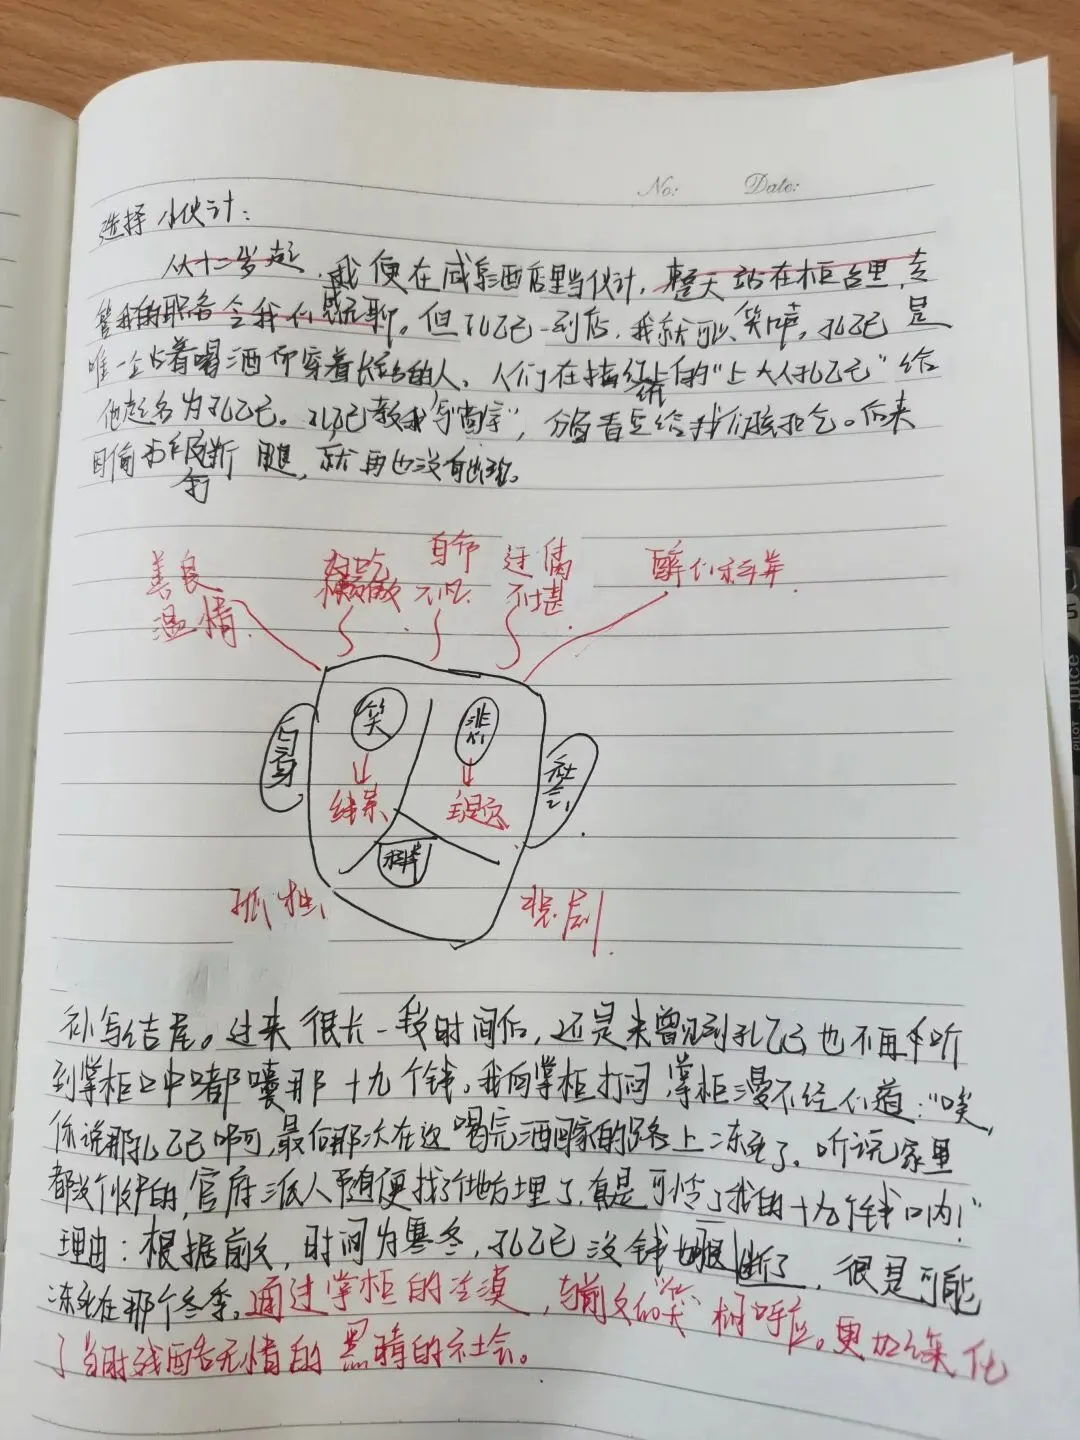 No: Date:
选择 小伙计:
从十二岁起,我便在咸亨酒店里当伙计,整天站在柜台里,专
管我的职务令我们感无聊。但孔乙己一到店,我就可以笑几声,孔乙己是
唯一站着喝酒而穿着长衫的人,人们在描红纸上的“上大人孔乙己”给
他起名为孔乙己。孔乙己教我写“茴字”,分茴香豆给我们孩子们吃。后来
因偷书被打断腿,就再也没有出现。
善良 好吃 自命 迂腐 醉们麻痹
温情 懒做 不凡 不堪
笑 悲
自身 社会
线索 主题
孤独 悲剧
补写结尾。过来很长一段时间后,还是未曾见到孔乙己也不再听
到掌柜口中嘟囔那十九个钱。我向掌柜打问,掌柜漫不经心道:“唉,
你说那孔乙己啊,最后那次在这喝完酒回家的路上冻死了。听说家里
都没个收尸的,官府派人随便找了个地方埋了,真是可怜了我的十九个钱呐!”
理由:根据前文,时间为寒冬,孔乙己没钱腿断了,很是可能
冻死在那个冬季。通过掌柜的冷漠,与前文的“笑”相呼应。更加深化
了当时残酷无情的黑暗的社会。